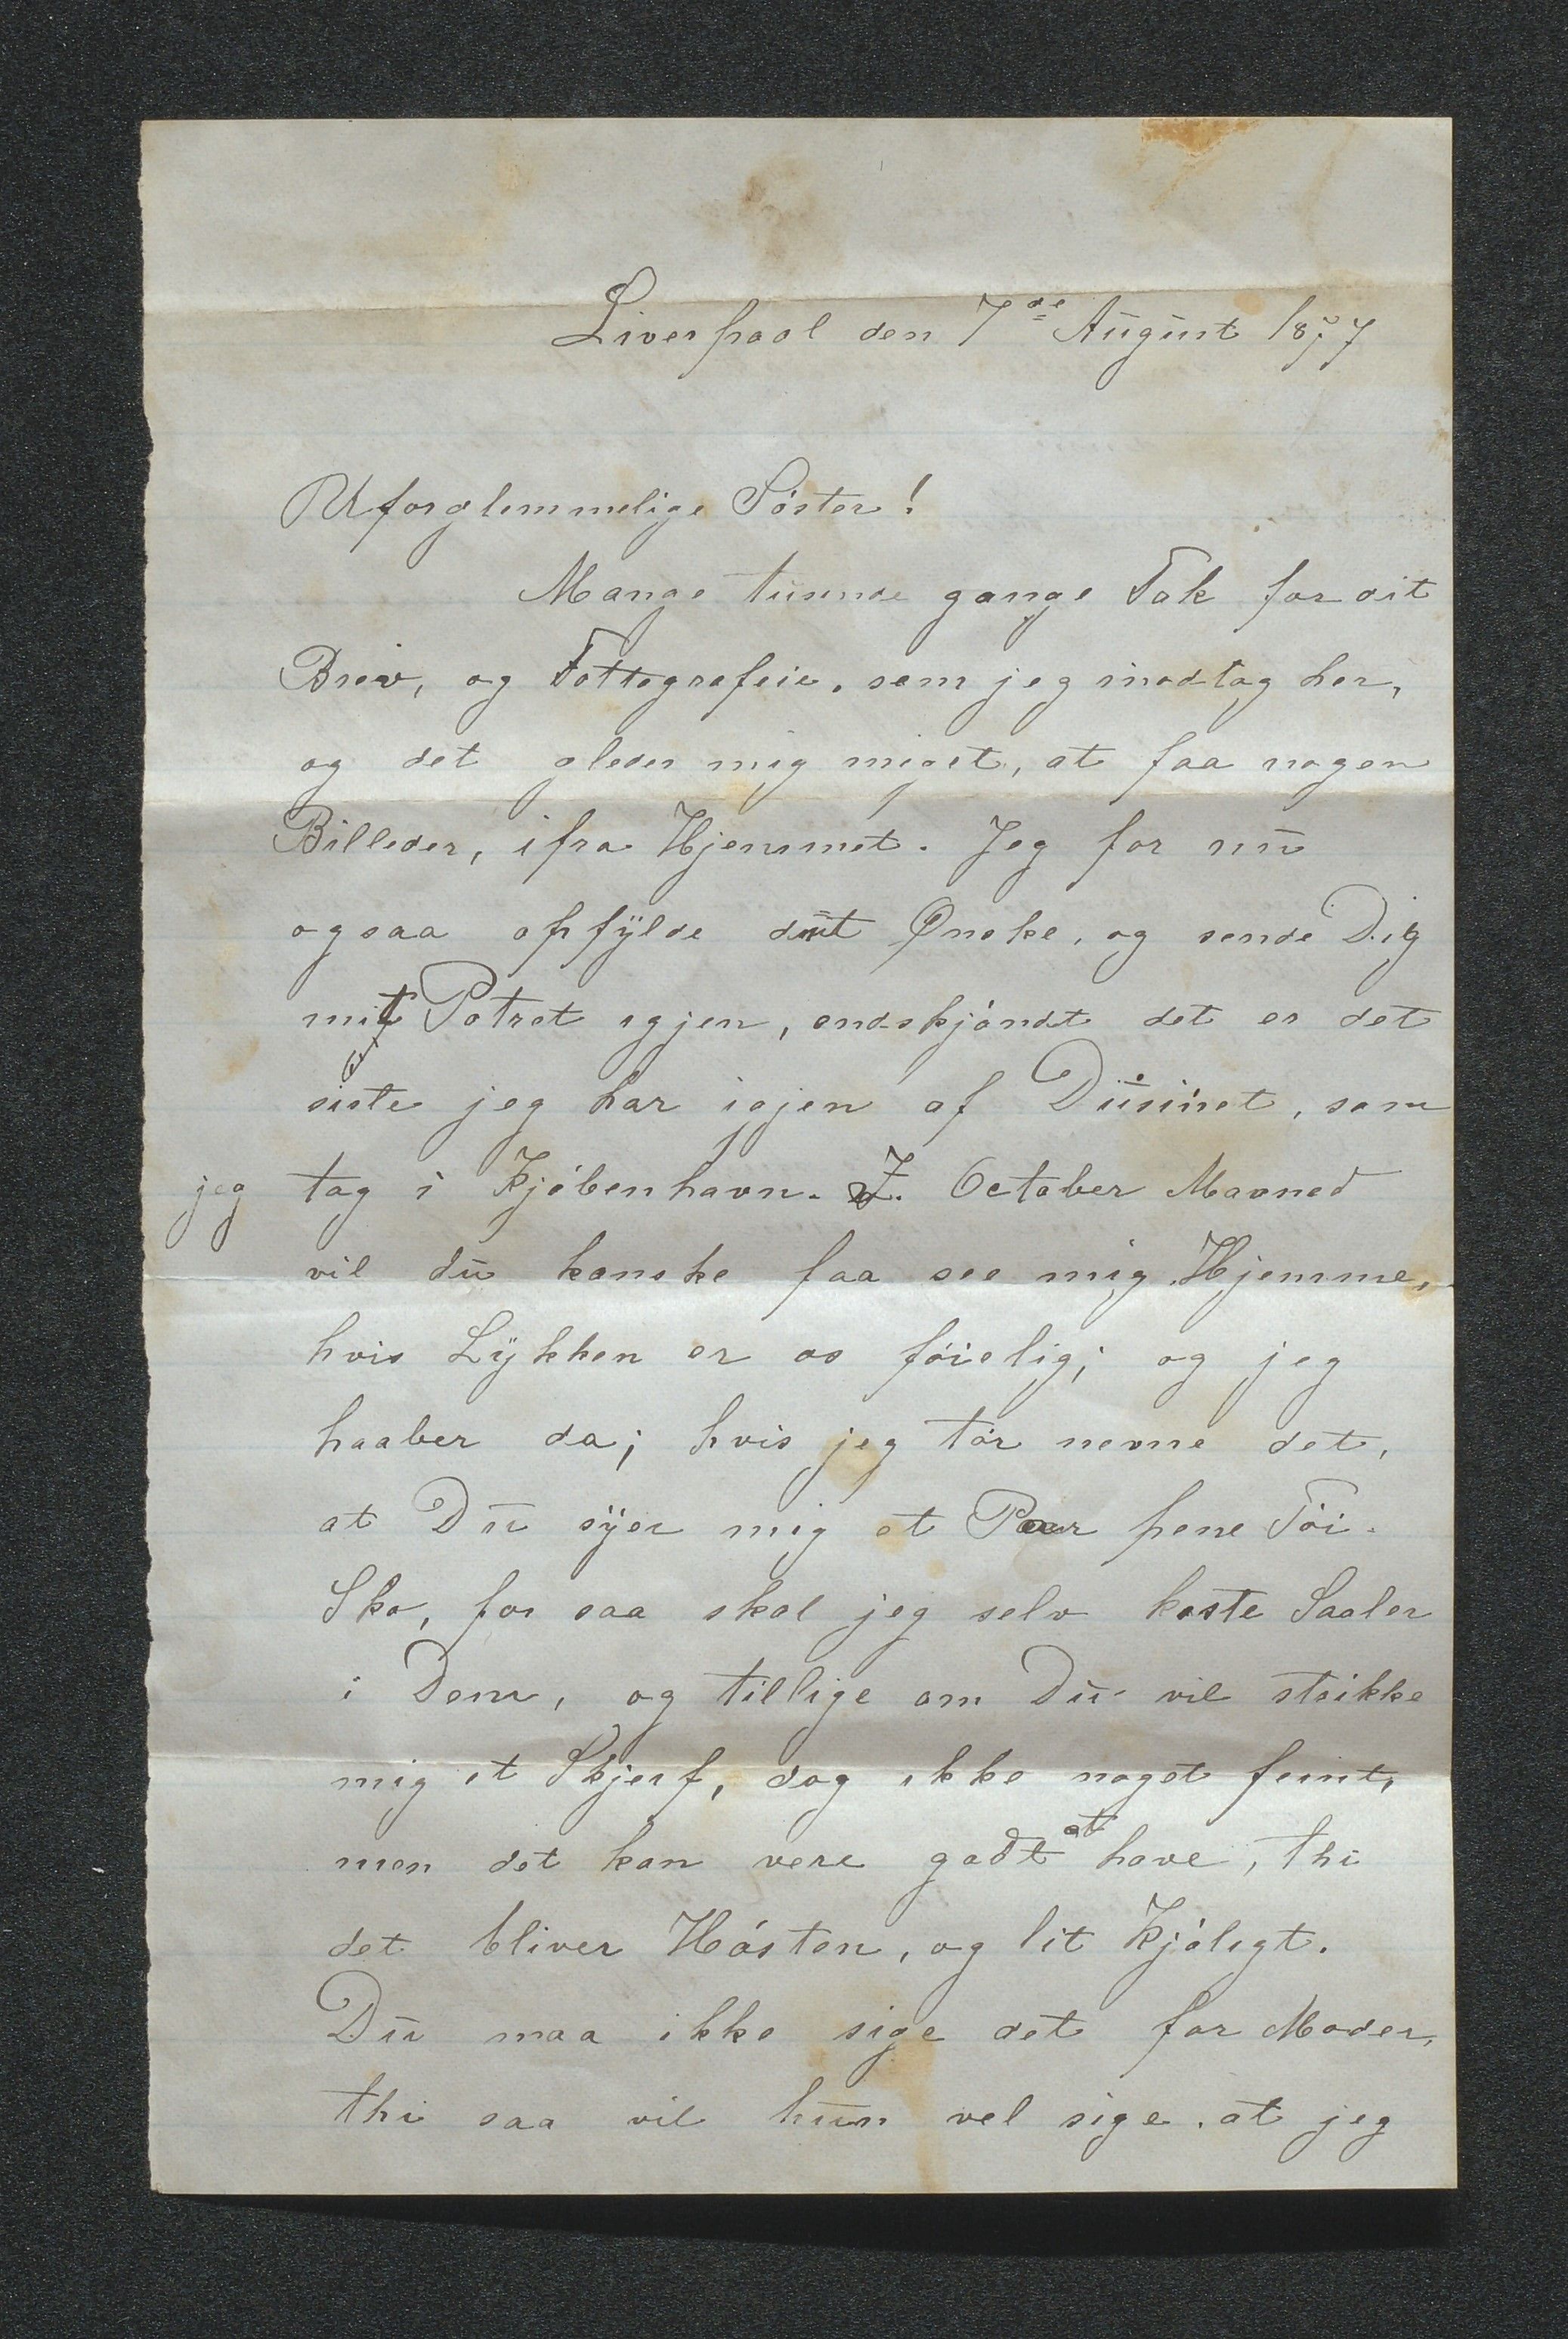 Liverpool den 7de August 1877
Uforglemmelige Söster!
Mange tusende gange Tak for dit
Brev, og Fottografeie, som jeg modtog her,
og det gleder mig miget, at faa nogen
Billeder, ifra Hjemmet. Jeg for nu
ogsaa opfÿlde dit Ønske, og sende Dig
mit Potret igjen, endskjöndt det er det
siste jeg har igjen af Dusinet, som
jeg tog i Kjöbenhavn. I. October Maaned
vil du kanske faa see mig Hjemme,
hvis Lÿkken er os föielig; og jeg
haaber da; hvis jeg tör nevne det,
at Du sÿer mig et Paar pene Töi-
Sko, for saa skal jeg selv koste Saaler
i Dem, og tillige om Du vil strikke
mig et Skjerf, dog ikke noget feint,
men det kan vere godt at have, thi
det bliver Hösten, og lit Kjöligt.
Du maa ikke sige det for Moder,
thi saa vil hun vel sige at jeg